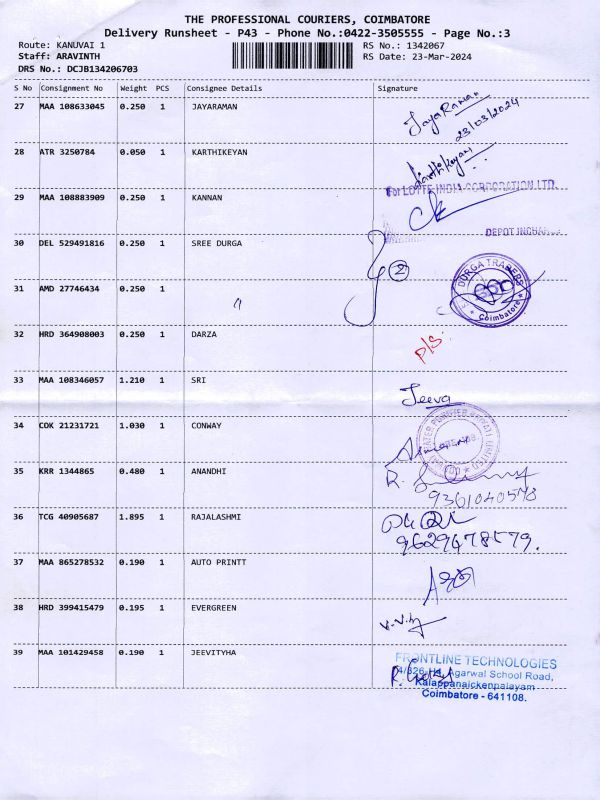 THE PROFESSIONAL COURIERS, COIMBATORE
Delivery Runsheet - P43 - Phone No.:0422-3505555 - Page No.:3
Route: KANUVAI 1 RS No.: 1342067
Staff: ARAVINTH RS Date: 23-Mar-2024
DRS No.: DCJB134206703
S No Consignment No Weight PCS Consignee Details Signature
27 MAA 108633045 0.250 1 JAYARAMAN JayaRaman
23/03/2024
28 ATR 3250784 0.050 1 KARTHIKEYAN Karthikeyan
For LOTTE INDIA CORPORATION LTD.
29 MAA 108883909 0.250 1 KANNAN
DEPOT INCHARGE
30 DEL 529491816 0.250 1 SREE DURGA
2
DURGA TRADERS
Coimbatore
31 AMD 27746434 0.250 1 "
32 HRD 364908003 0.250 1 DARZA P/S
33 MAA 108346057 1.210 1 SRI Jeeva
34 COK 21231721 1.030 1 CONWAY
35 KRR 1344865 0.480 1 ANANDHI
9361040578
36 TCG 40905687 1.895 1 RAJALASHMI
9629478579.
37 MAA 865278532 0.190 1 AUTO PRINTT
38 HRD 399415479 0.195 1 EVERGREEN
39 MAA 101429458 0.190 1 JEEVITYHA
FRONTLINE TECHNOLOGIES
Agarwal School Road,
Kalappanaickenpalayam
Coimbatore - 641108.